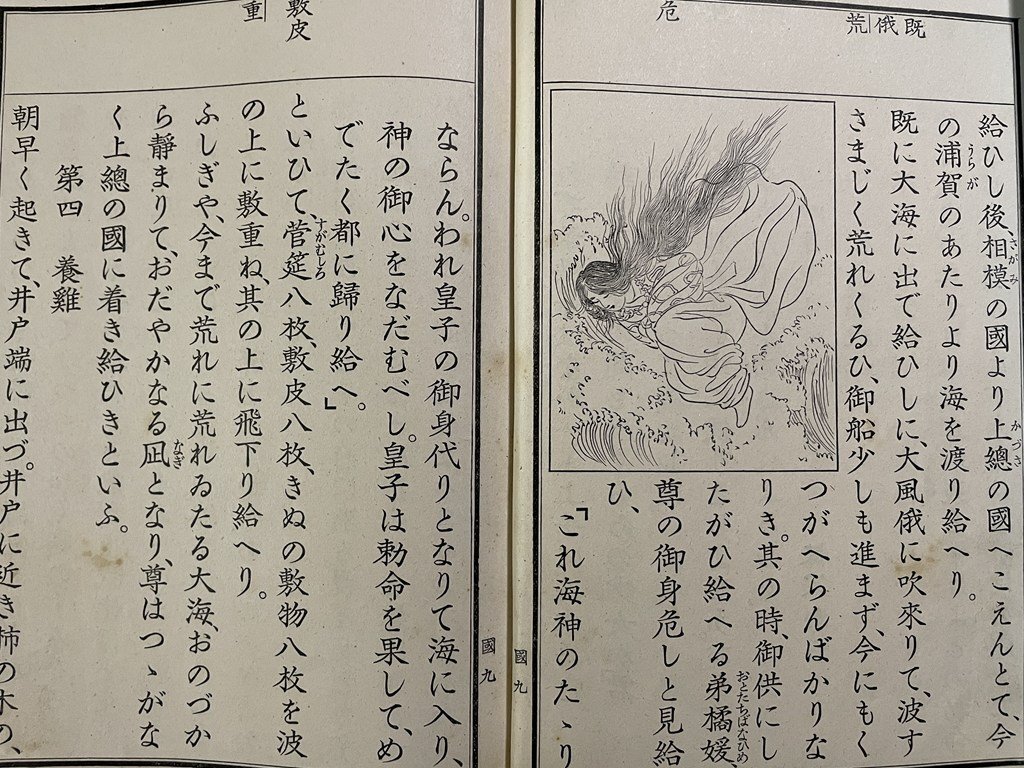 既
俄
荒
危
給ひし後、相模の國より上總の國へこえんとて、今
の浦賀のあたりより海を渡り給へり。
既に大海に出で給ひしに、大風俄に吹來りて、波す
さまじく荒れくるひ、御船少しも進まず、今にもく
つがへらんばかりな
りき。其の時、御供にし
たがひ給へる弟橘媛、
尊の御身危しと見給
ひ、
「これ海神のたゝり
國九
敷皮
重
ならん。われ皇子の御身代りとなりて海に入り、
神の御心をなだむべし。皇子は勅命を果して、め
でたく都に歸り給へ。」
といひて、菅筵八枚、敷皮八枚、きぬの敷物八枚を波
の上に敷重ね、其の上に飛下り給へり。
ふしぎや、今まで荒れに荒れゐたる大海、おのづか
ら靜まりて、おだやかなる凪となり、尊はつゝがな
く上總の國に着き給ひきといふ。
第四 養雞
朝早く起きて、井戸端に出づ。井戸に近き柿の木の、
國九